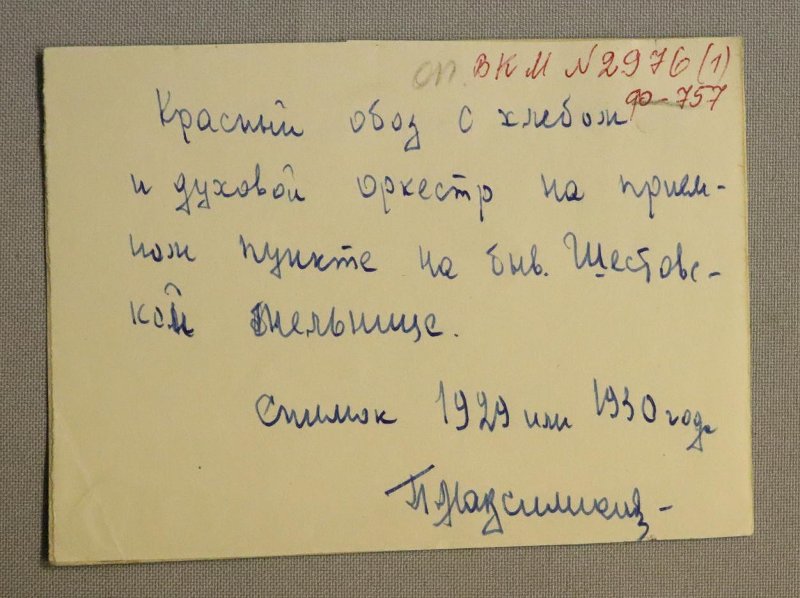 оп. ВКМ № 2976 (1)
ф-757
Красный обоз с хлебом
и духовой оркестр на прием-
ном пункте на быв. Шестовс-
кой мельнице.
Снимок 1929 или 1930 года